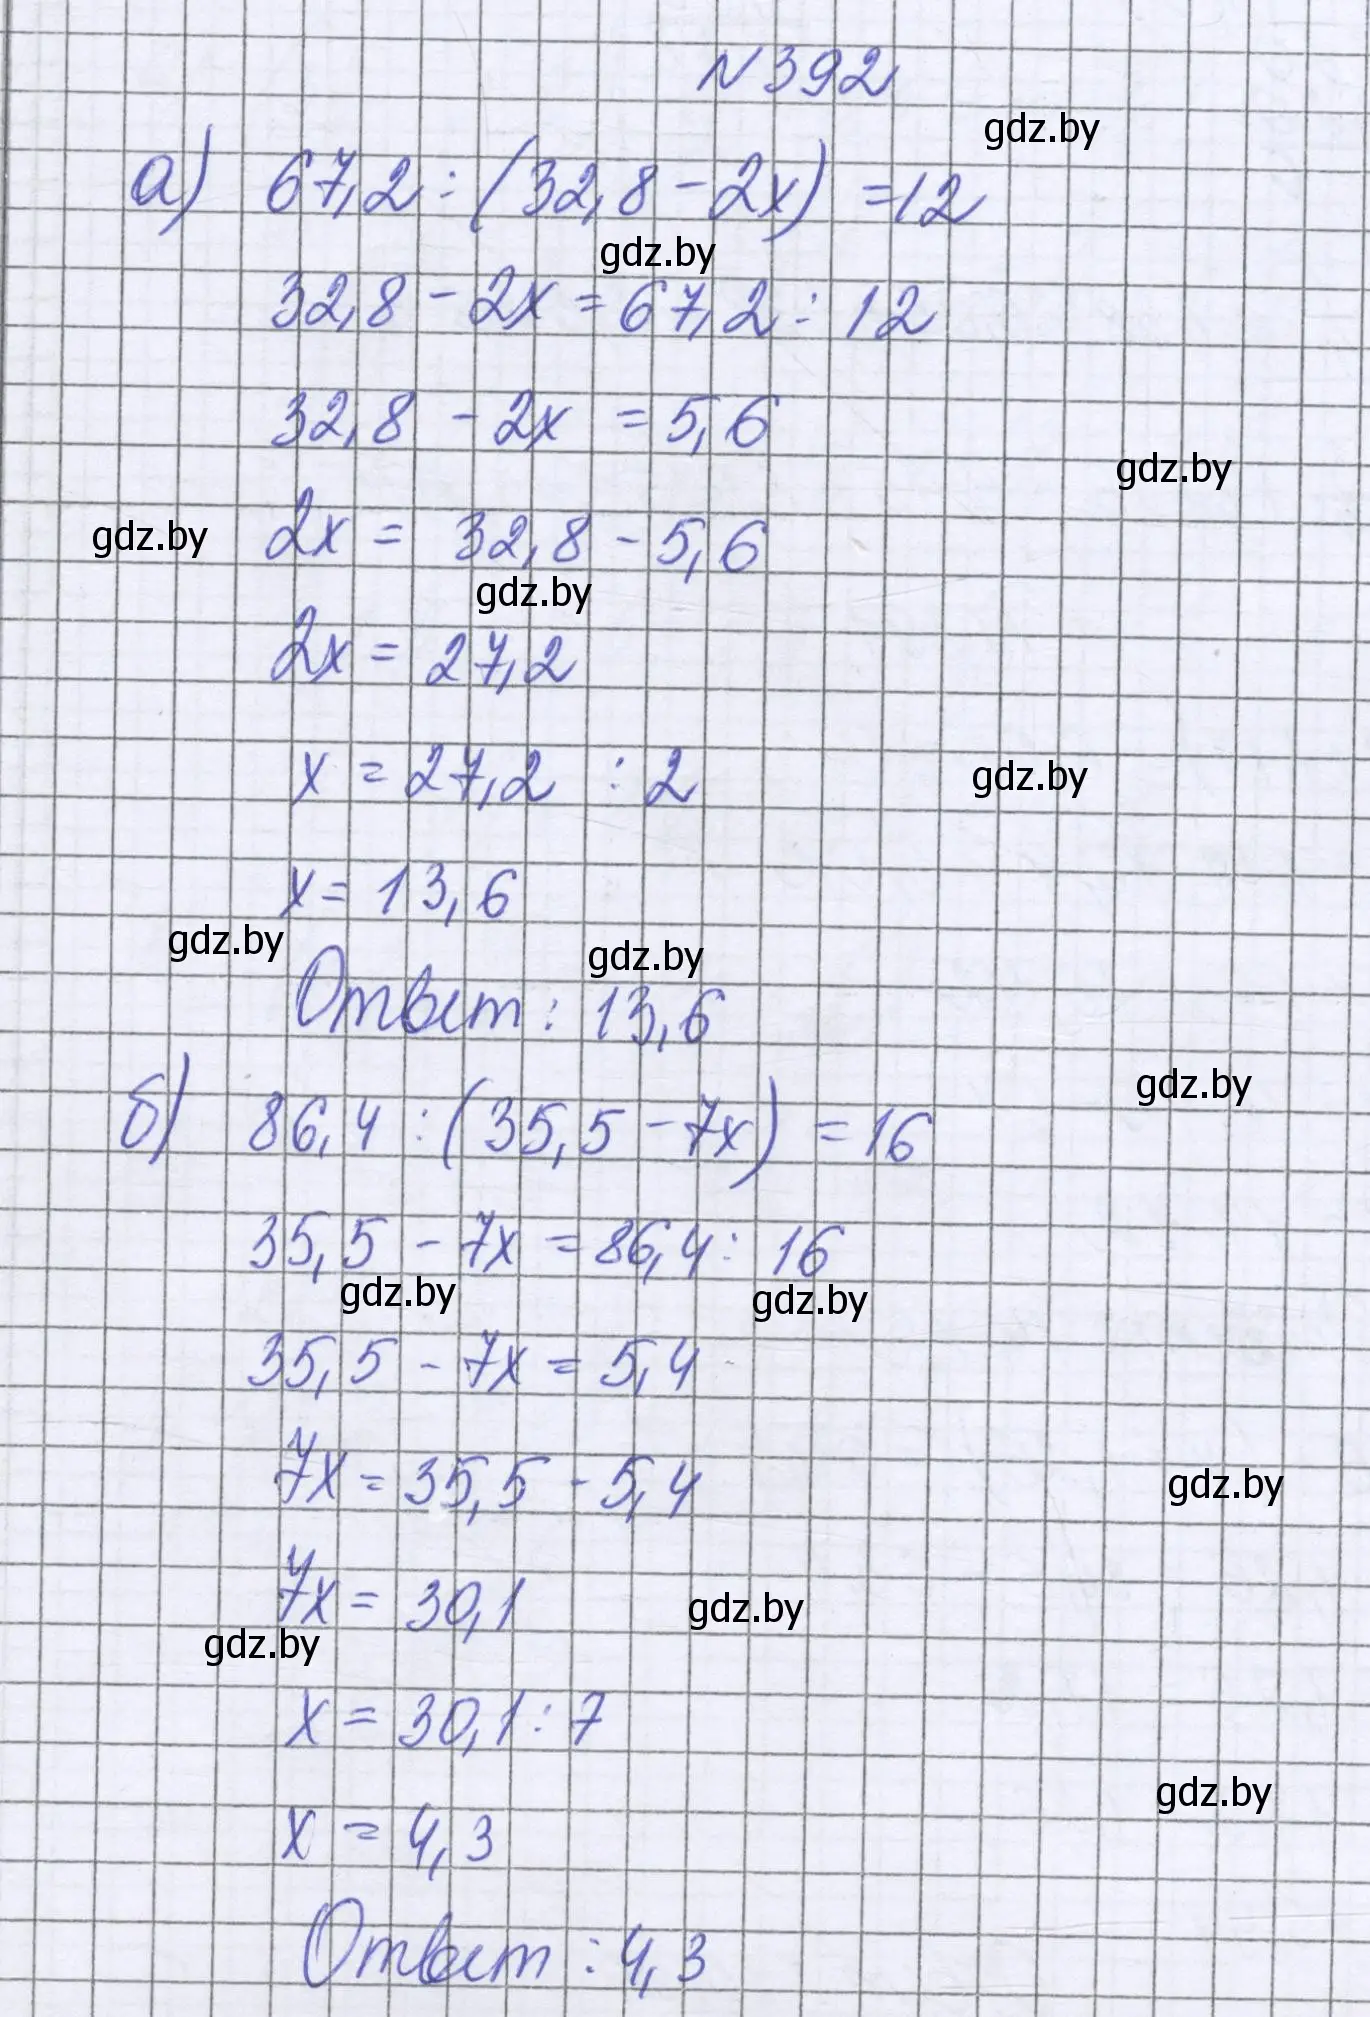 N392
gdz.by
а) 67,2 : (32,8 - 2x) = 12
gdz.by
32,8 - 2x = 67,2 : 12
32,8 - 2x = 5,6
gdz.by
gdz.by 2x = 32,8 - 5,6
gdz.by
2x = 27,2
x = 27,2 : 2
gdz.by
x = 13,6
gdz.by gdz.by
Ответ: 13,6
gdz.by
б) 86,4 : (35,5 - 7x) = 16
35,5 - 7x = 86,4 : 16
gdz.by gdz.by
35,5 - 7x = 5,4
7x = 35,5 - 5,4
gdz.by
7x = 30,1
gdz.by
gdz.by
x = 30,1 : 7
gdz.by
x = 4,3
Ответ : 4,3